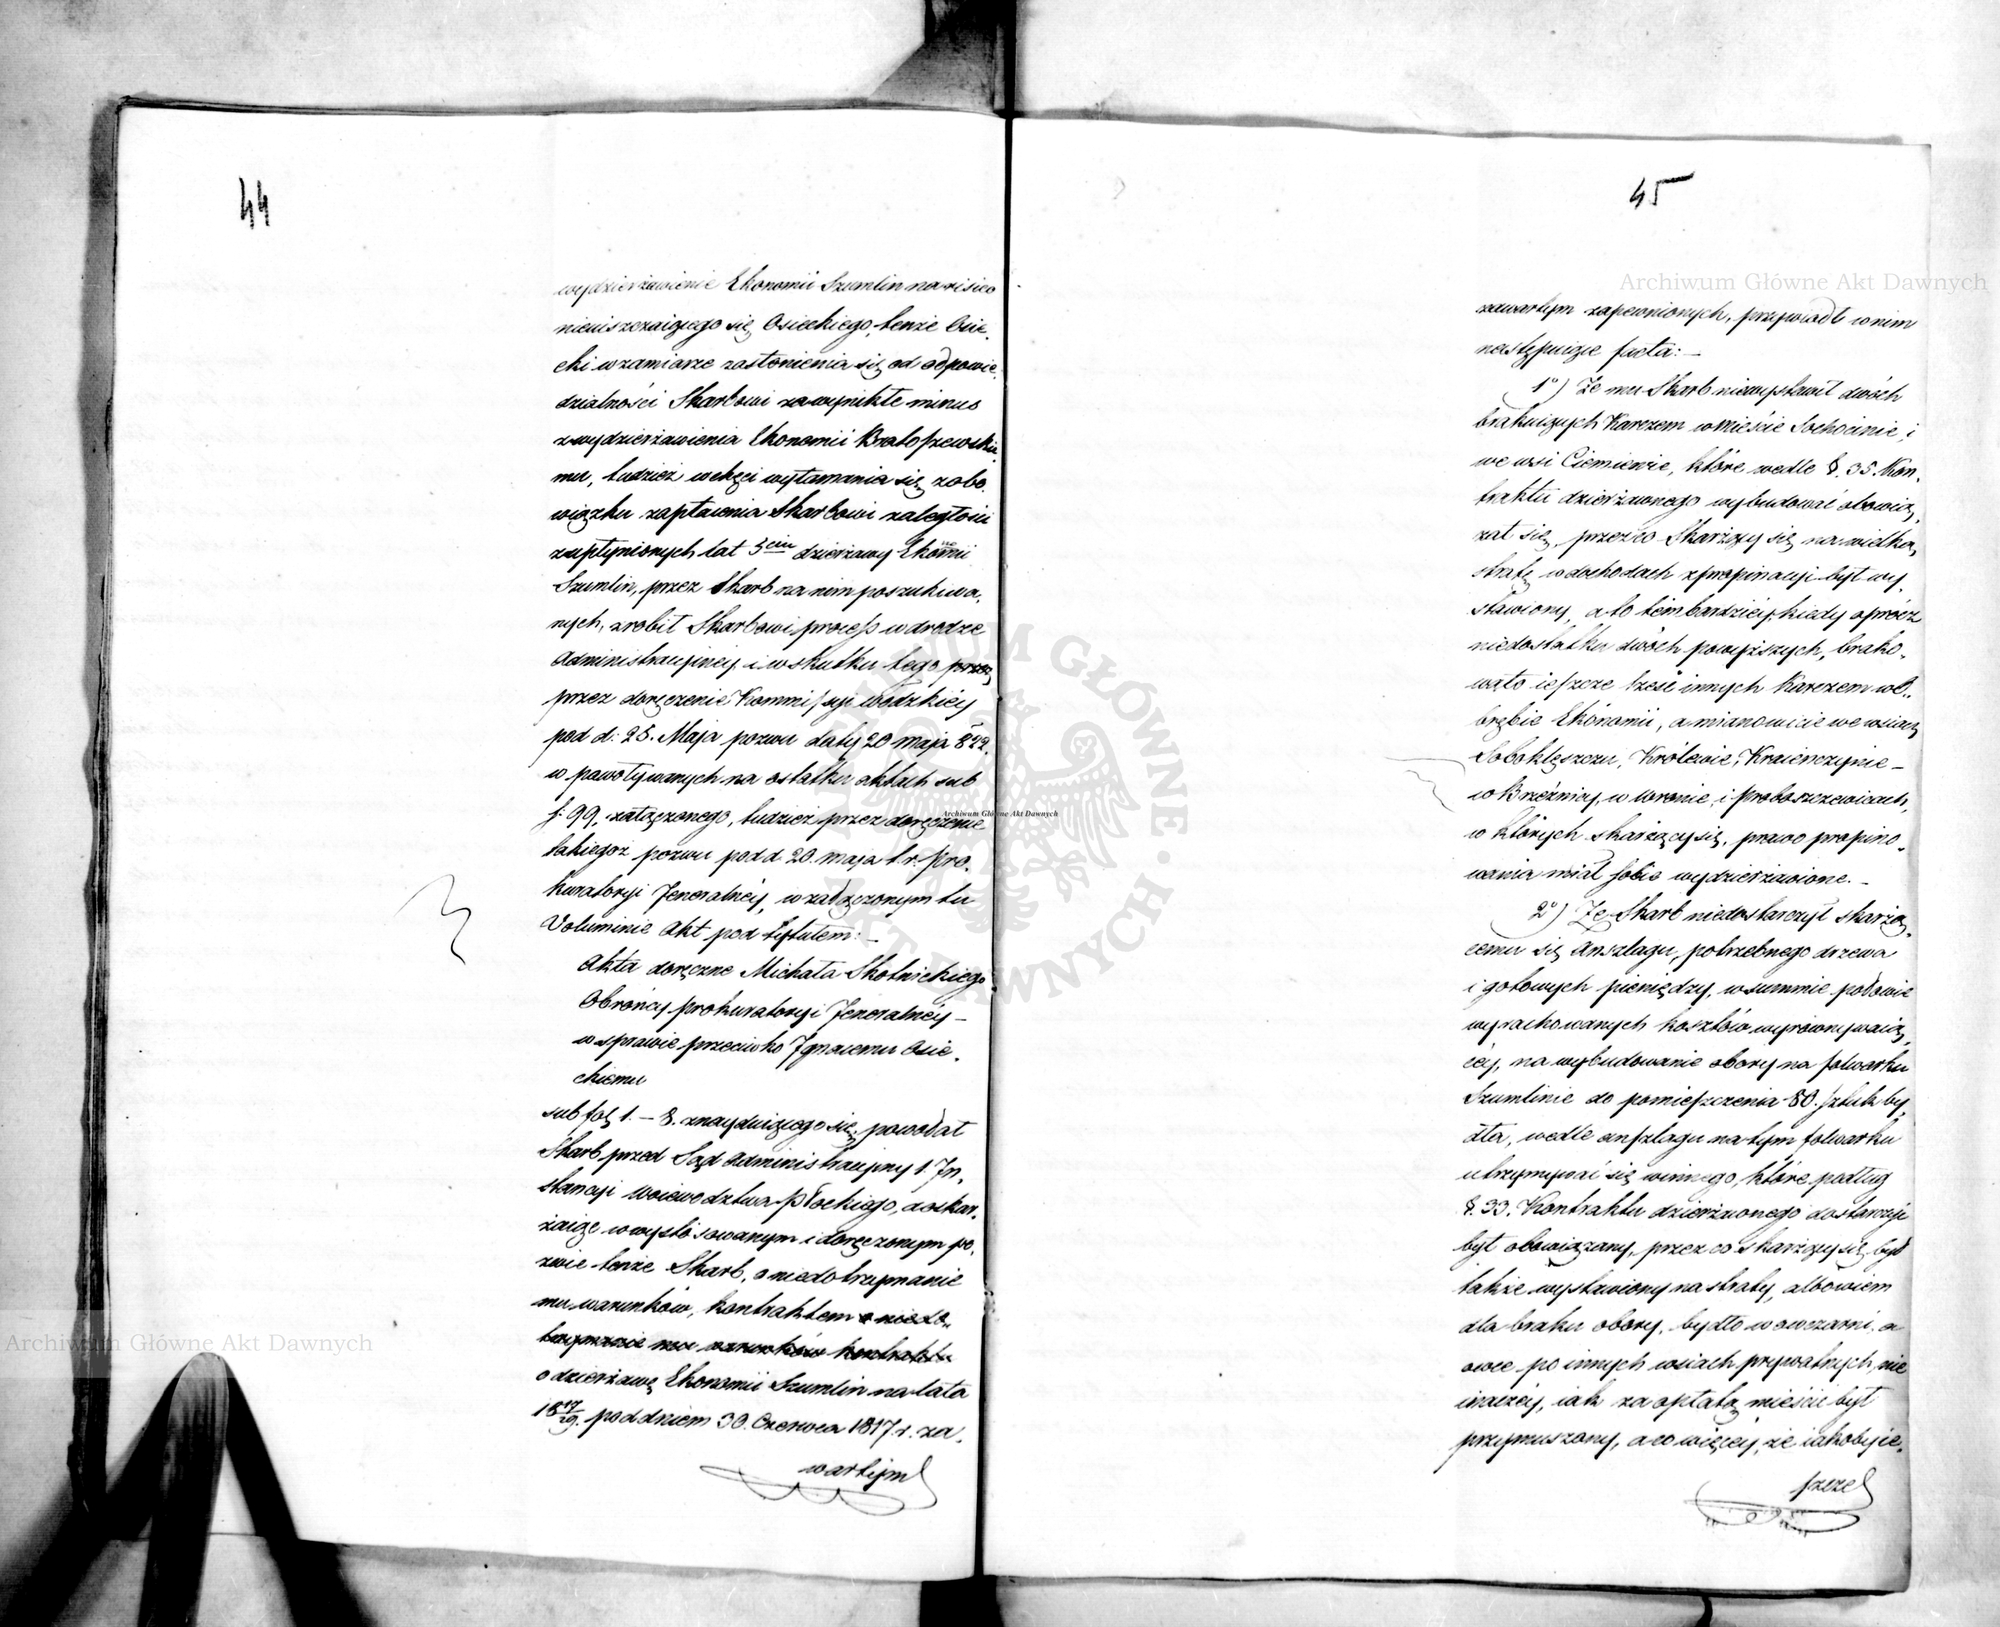 44
wydzierżawienie Ekonomii Szumlin na risico
nieuiszczaiącego się Osieckiego, tenże Osie-
cki w zamiarze zasłonienia się od odpowie-
dzialności Skarbowi za wynikłe minus
z wydzierżawienia Ekonomii Bratoszewskie-
mu, tudzież w chęci wyłamania się z obo-
wiązku zapłacenia Skarbowi zaległości
z upłynionych lat 3ech dzierżawy Ekonomii
Szumlin, przez Skarb na nim poszukiwa-
nych, zrobił Skarbowi process w drodze
Administracyjnéy i w skutku tego przez
przez doręczenie Kommissyi Wdzkiéy
pod d: 25. Maja pozwu daty 20 maja 822.
w powoływanych na ostatku aktach sub
f: 99. załączonego, tudzież przez doręczenie
takiegoż pozwu pod d 20. maja t.r. Pro-
kuratoryi Jeneralnéy, w załączonym tu
Voluminie Akt pod tytułem: –
Akta doręczne Michała Skotnickiego
Obrońcy Prokuratoryi Jeneralnéy –
w sprawie przeciwko Ignacemu Osie-
ckiemu
sub fol 1. – 8. znayduiącego się, powołał
Skarb przed Sąd Administracyjny 1. In-
stancyi Woiewodztwa Płockiego, a oskar-
żaiąc w wystósowanym i doręczonym po-
zwie tenże Skarb, o niedotrzymanie
mu warunków, kontraktem o niedo-
trzymanie mu warunków kontraktu
o dzierżawę Ekonomii Szumlin na lata
18 17/29. pod dniem 30. Czerwca 1817 r. za-
wartym
45
zawartym zapewnionych, przywiódł w nim
następuiące facta: –
1º) Że mu Skarb niewystawił dwóch
brakuiących Karczem w mieście Sochocinie, i
we wsi Ciemiewie, które wedle §. 35. Kon-
traktu dzierżawnego wybudować obowią-
zał się, przez co Skarżący się na wielką
stratę w dochodach z propinacyi był wy-
stawiony, a to tém bardziéy, kiedy oprócz
niedostatku dwóch powyższych, brako-
wało ieszcze sześć innych Karczem w o-
brębie Ekonomii, a mianowicie we wsiach
Sobokleszczu, Królewie, Kraieńczynie –
w Brzéźnicy, w Wronie, i Proboszczewicach,
w których skarżący się, prawo propino-
wania miał sobie wydzierżawione. –
2º) Że Skarb niedostarczył skarżą-
cemu się Anszlagu, potrzebnego drzewa
i gotowych pieniędzy, w summie połowie
wyrachowanych kosztów wyrównywaią-
céy, na wybudowanie obory na folwarku
Szumlinie do pomieszczenia 80. sztuk by-
dła, wedle anszlagu na tym folwarku
utrzymywać się winnego, które podług
§. 33. Kontraktu dzierżawnego dostarczyć
był obowiązany, przez co skarżący się był
także wystawiony na straty, albowiem
dla braku obory, bydło w owczarni, a
owce po innych wsiach prywatnych, nie
inaczéy, iak za opłatą mieścić był
przymuszony, a co więcéy, że iakoby ie-
szcze
Archiwum Główne Akt Dawnych
Archiwum Główne Akt Dawnych
Archiwum Główne Akt Dawnych